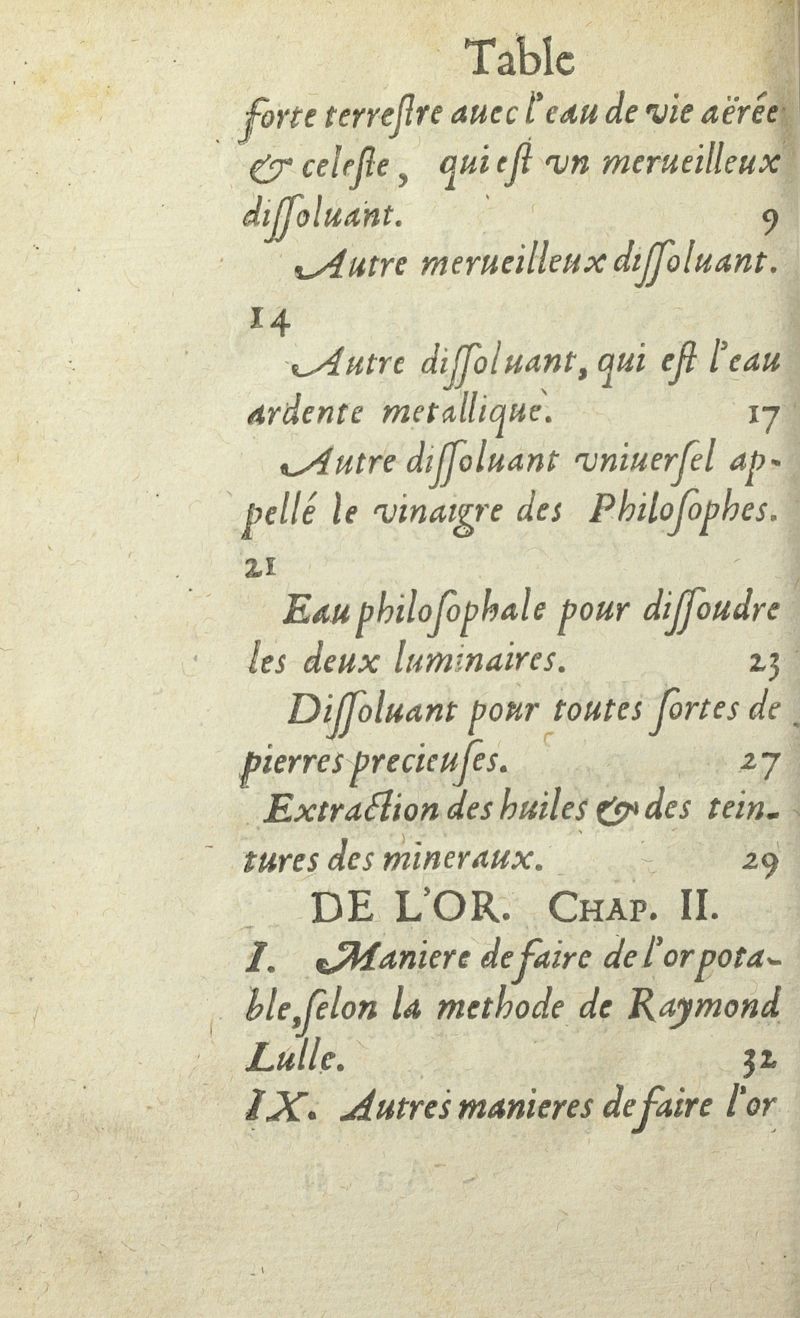 Table
forte terreſtre auec l'eau de vie aërée
& celeſte, qui eſt vn merueilleux
diſſoluant. 9
Autre merueilleux diſſoluant.
14
Autre diſſoluant, qui eſt l'eau
ardente metallique. 17
Autre diſſoluant vniuerſel ap-
pellé le vinaigre des Philoſophes.
21
Eau philoſophale pour diſſoudre
les deux luminaires. 23
Diſſoluant pour toutes ſortes de
pierres precieuſes. 27
Extraction des huiles & des tein-
tures des mineraux. 29
DE L'OR. CHAP. II.
I. Maniere de faire de l'or pota-
ble, ſelon la methode de Raymond
Lulle. 32
IX. Autres manieres de faire l'or